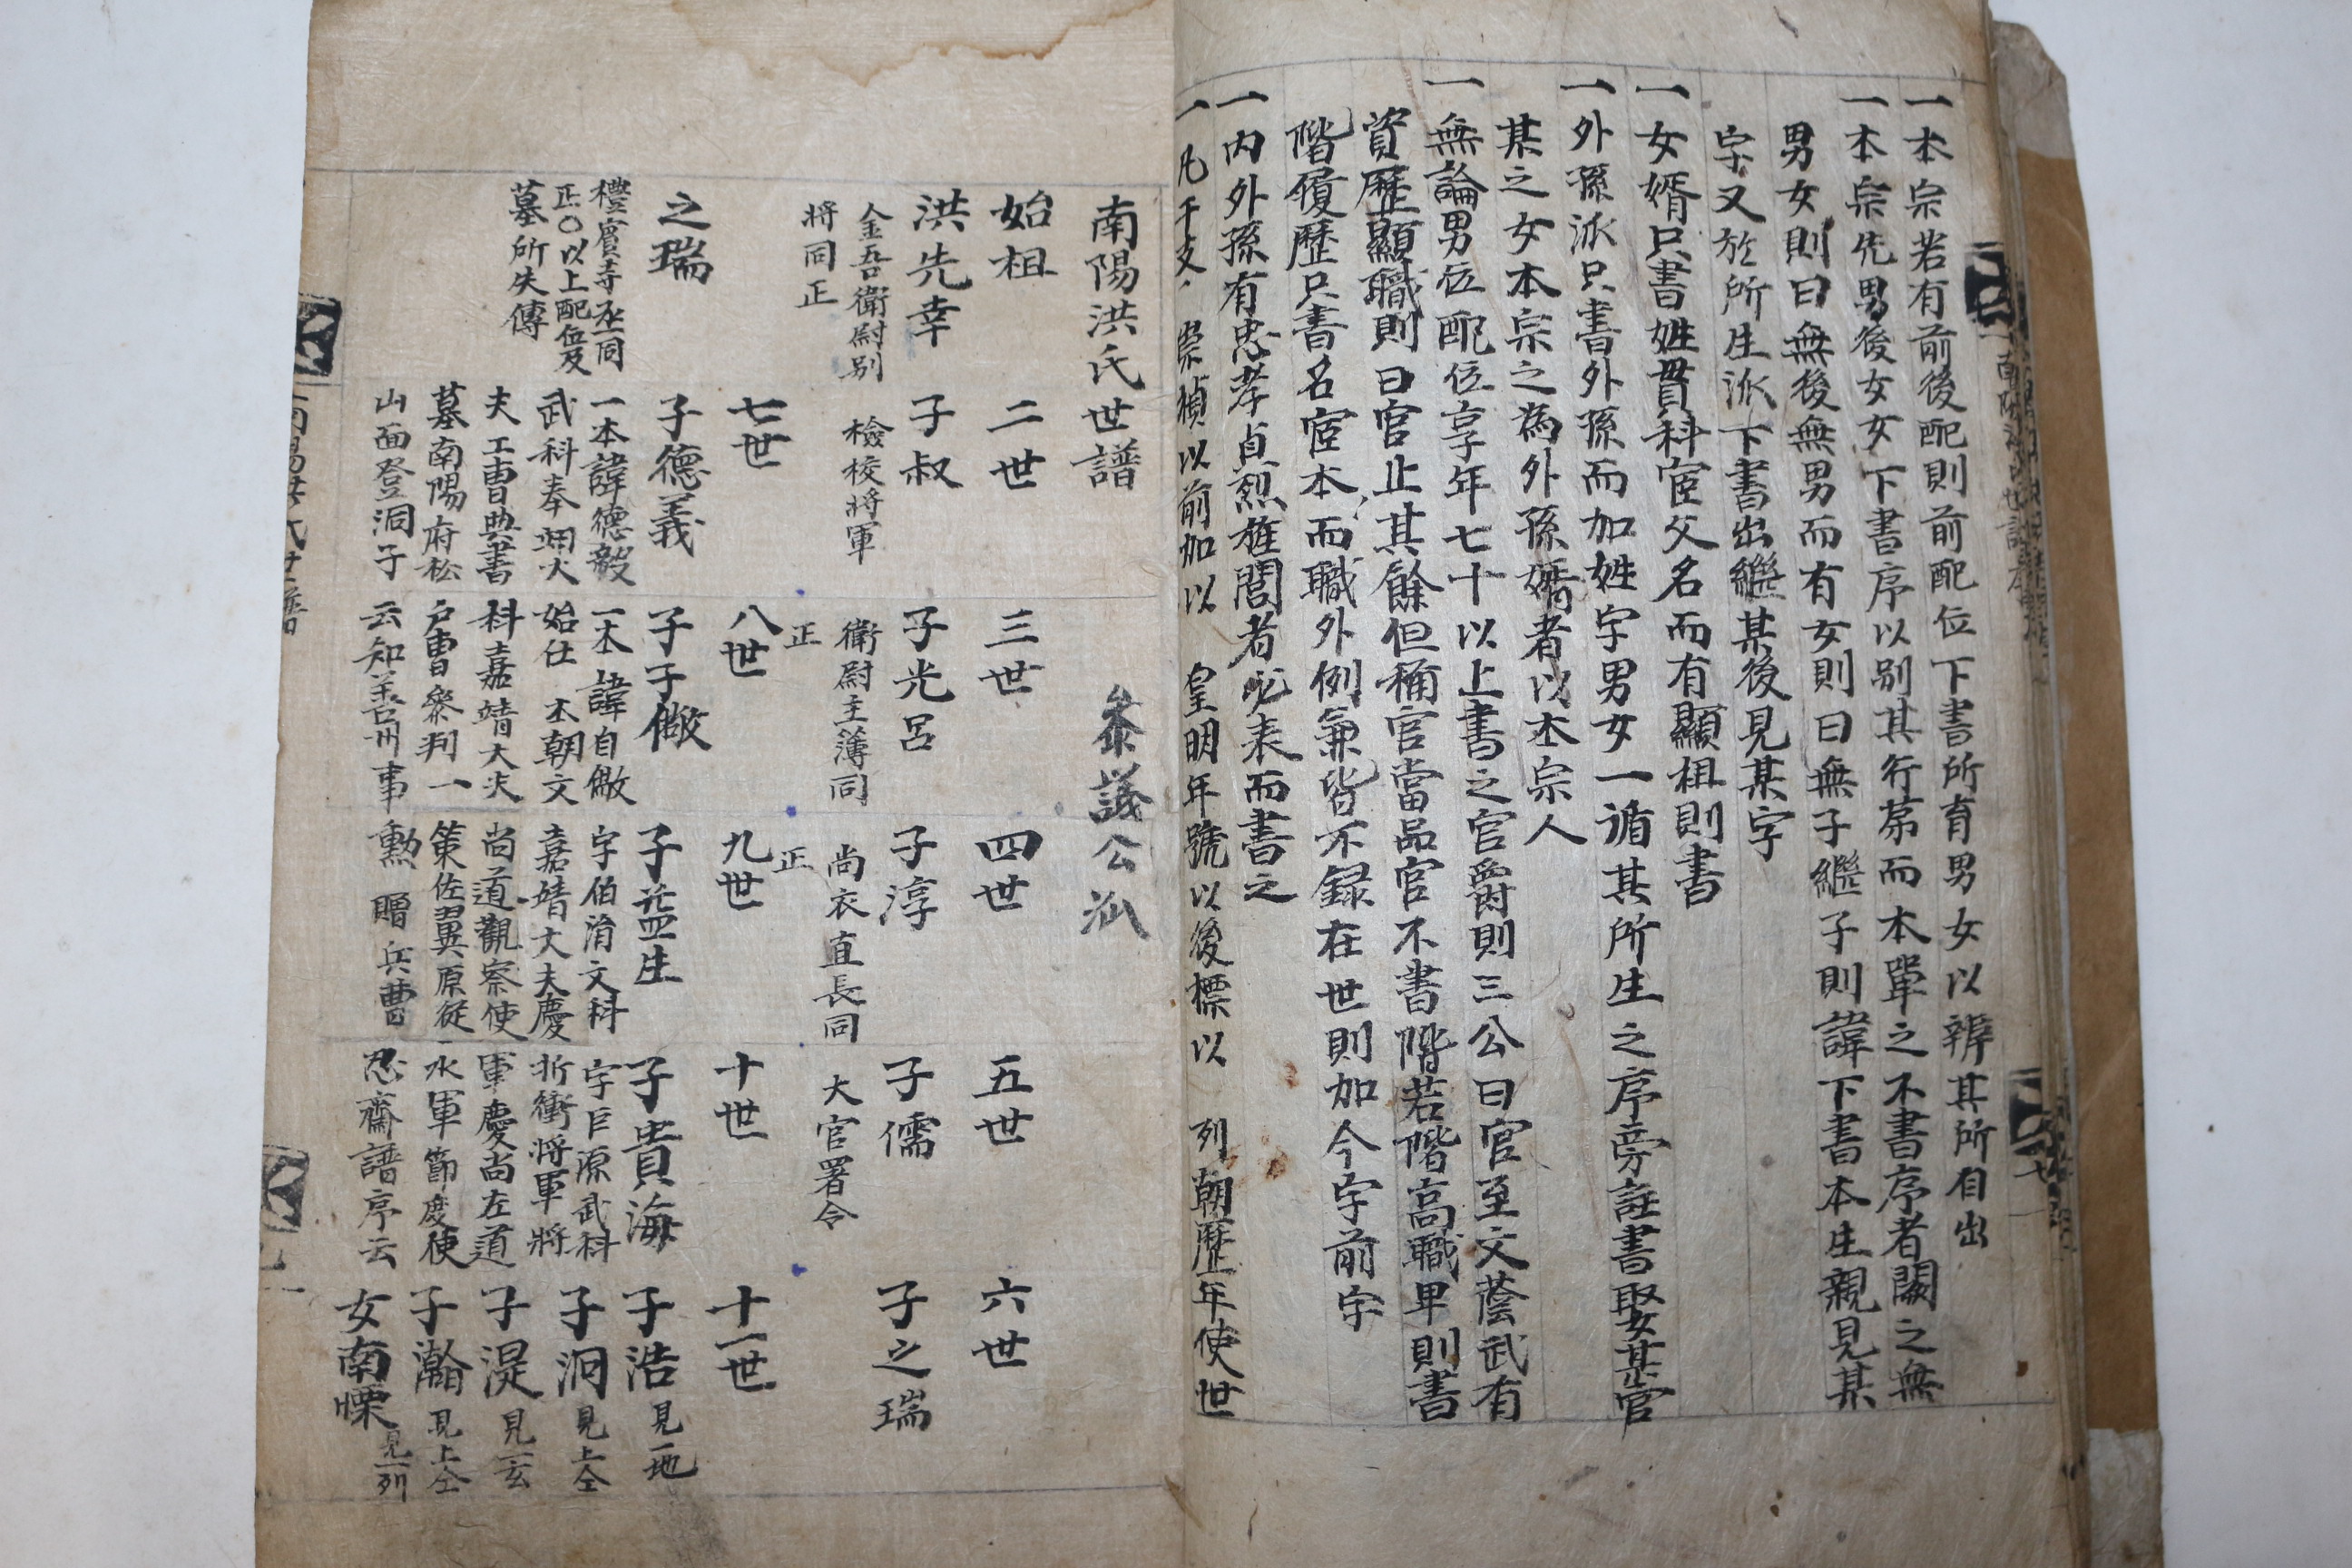 一本宗若有前後配則前配位下書所育男女以辨其所自出
一本宗先男後女女下書序以別其行苐而本單之不書序者闕之無
男女則曰無後無男而有女則曰無子繼子則諱下書本生親見某
字又於所生派下書出繼某後見某字
一女婿只書姓貫科宦父名而有顯祖則書
一外孫派只書外孫而加姓字男女一遁其所生之序旁註書娶某官
某之女本宗之為外孫婿者以本宗人
一無論男位配位享年七十以上書之官爵則三公曰官至文蔭武有
資歷顯職則曰官止其餘但稱官當品官不書階若階高職卑則書
階履歷只書名宦本而職外例兼皆不録在世則加今字前字
一內外孫有忠孝貞烈旌閭者必表而書之
一凡干支崇禎以前加以 皇明年號以後標以 列朝歷年使世
南陽洪氏世譜 叅議公派
始祖 二世 三世 四世 五世 六世
洪先幸 子叔 子光呂 子淳 子儒 子之瑞
金吾衛尉別 檢校將軍 衛尉主簿同 尚衣直長同 大官署令
將同正 正 正
七世 八世 九世 十世 十一世
之瑞 子德義 子子儆 子益生 子貴海 子浩 見地
禮賓寺丞同 一本諱德毅 一本諱自儆 字伯淯文科 字巨源武科 子泂 見上仝
正○以上配位及 武科奉翊大 始仕 本朝文 嘉靖大夫慶 折衝將軍將 子湜 見玄
墓所失傳 夫工曹典書 科嘉靖大夫 尚道觀察使 軍慶尚左道 子瀚 見上仝
墓南陽府松 戶曹叅判一 策佐翼原從 水軍節度使 女南慄 見列
山面登洞子 云知善州事 勳 贈兵曹 忍齋譜序云